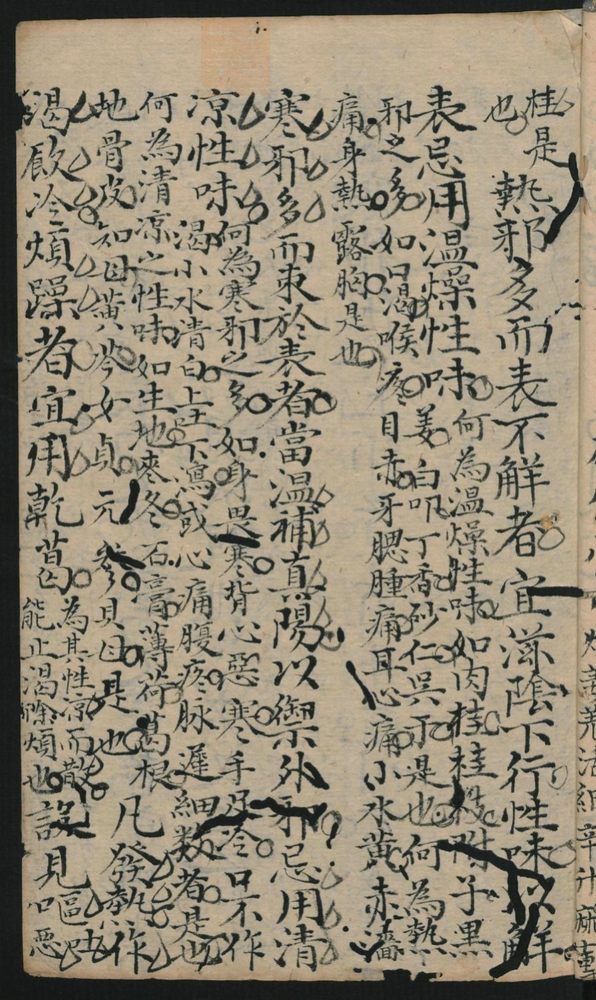 桂是
也 熱邪多而表不解者宜滋陰下行性味以解
表忌用温燥性味何為温燥性味如肉桂桂枝附子黒
姜白叩丁香砂仁吴于是也何為熱
邪之多如口渴喉疼目赤牙腮腫痛耳心痛小水黄赤
痛身熱露胸是也
寒邪多而束於表者當温補真陽以禦外邪忌用清
凉性味何為寒邪之多如身畏寒背心惡寒手足冷口不作
渴小水清白上吐下瀉或心痛腹疼脉遲細数者是也
何為清凉之性味如生地麥冬石膏薄荷葛根
地骨皮知母黄岑女貞元參貝母是也凡發熱作
渴飲冷煩躁者宜用乾葛為其性凉而散
能止渴除煩也設見嘔惡